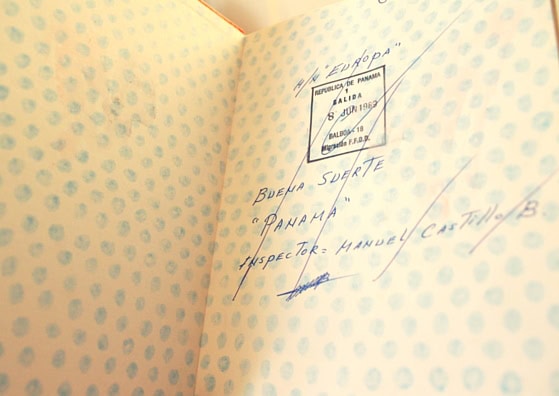 M/N "EUROPA"
REPUBLICA DE PANAMA
1
SALIDA
8 JUN 1989
BALBOA - 18
Migración F.F.D.D.
BUENA SUERTE
"PANAMA"
INSPECTOR= MANUEL CASTILLO B.